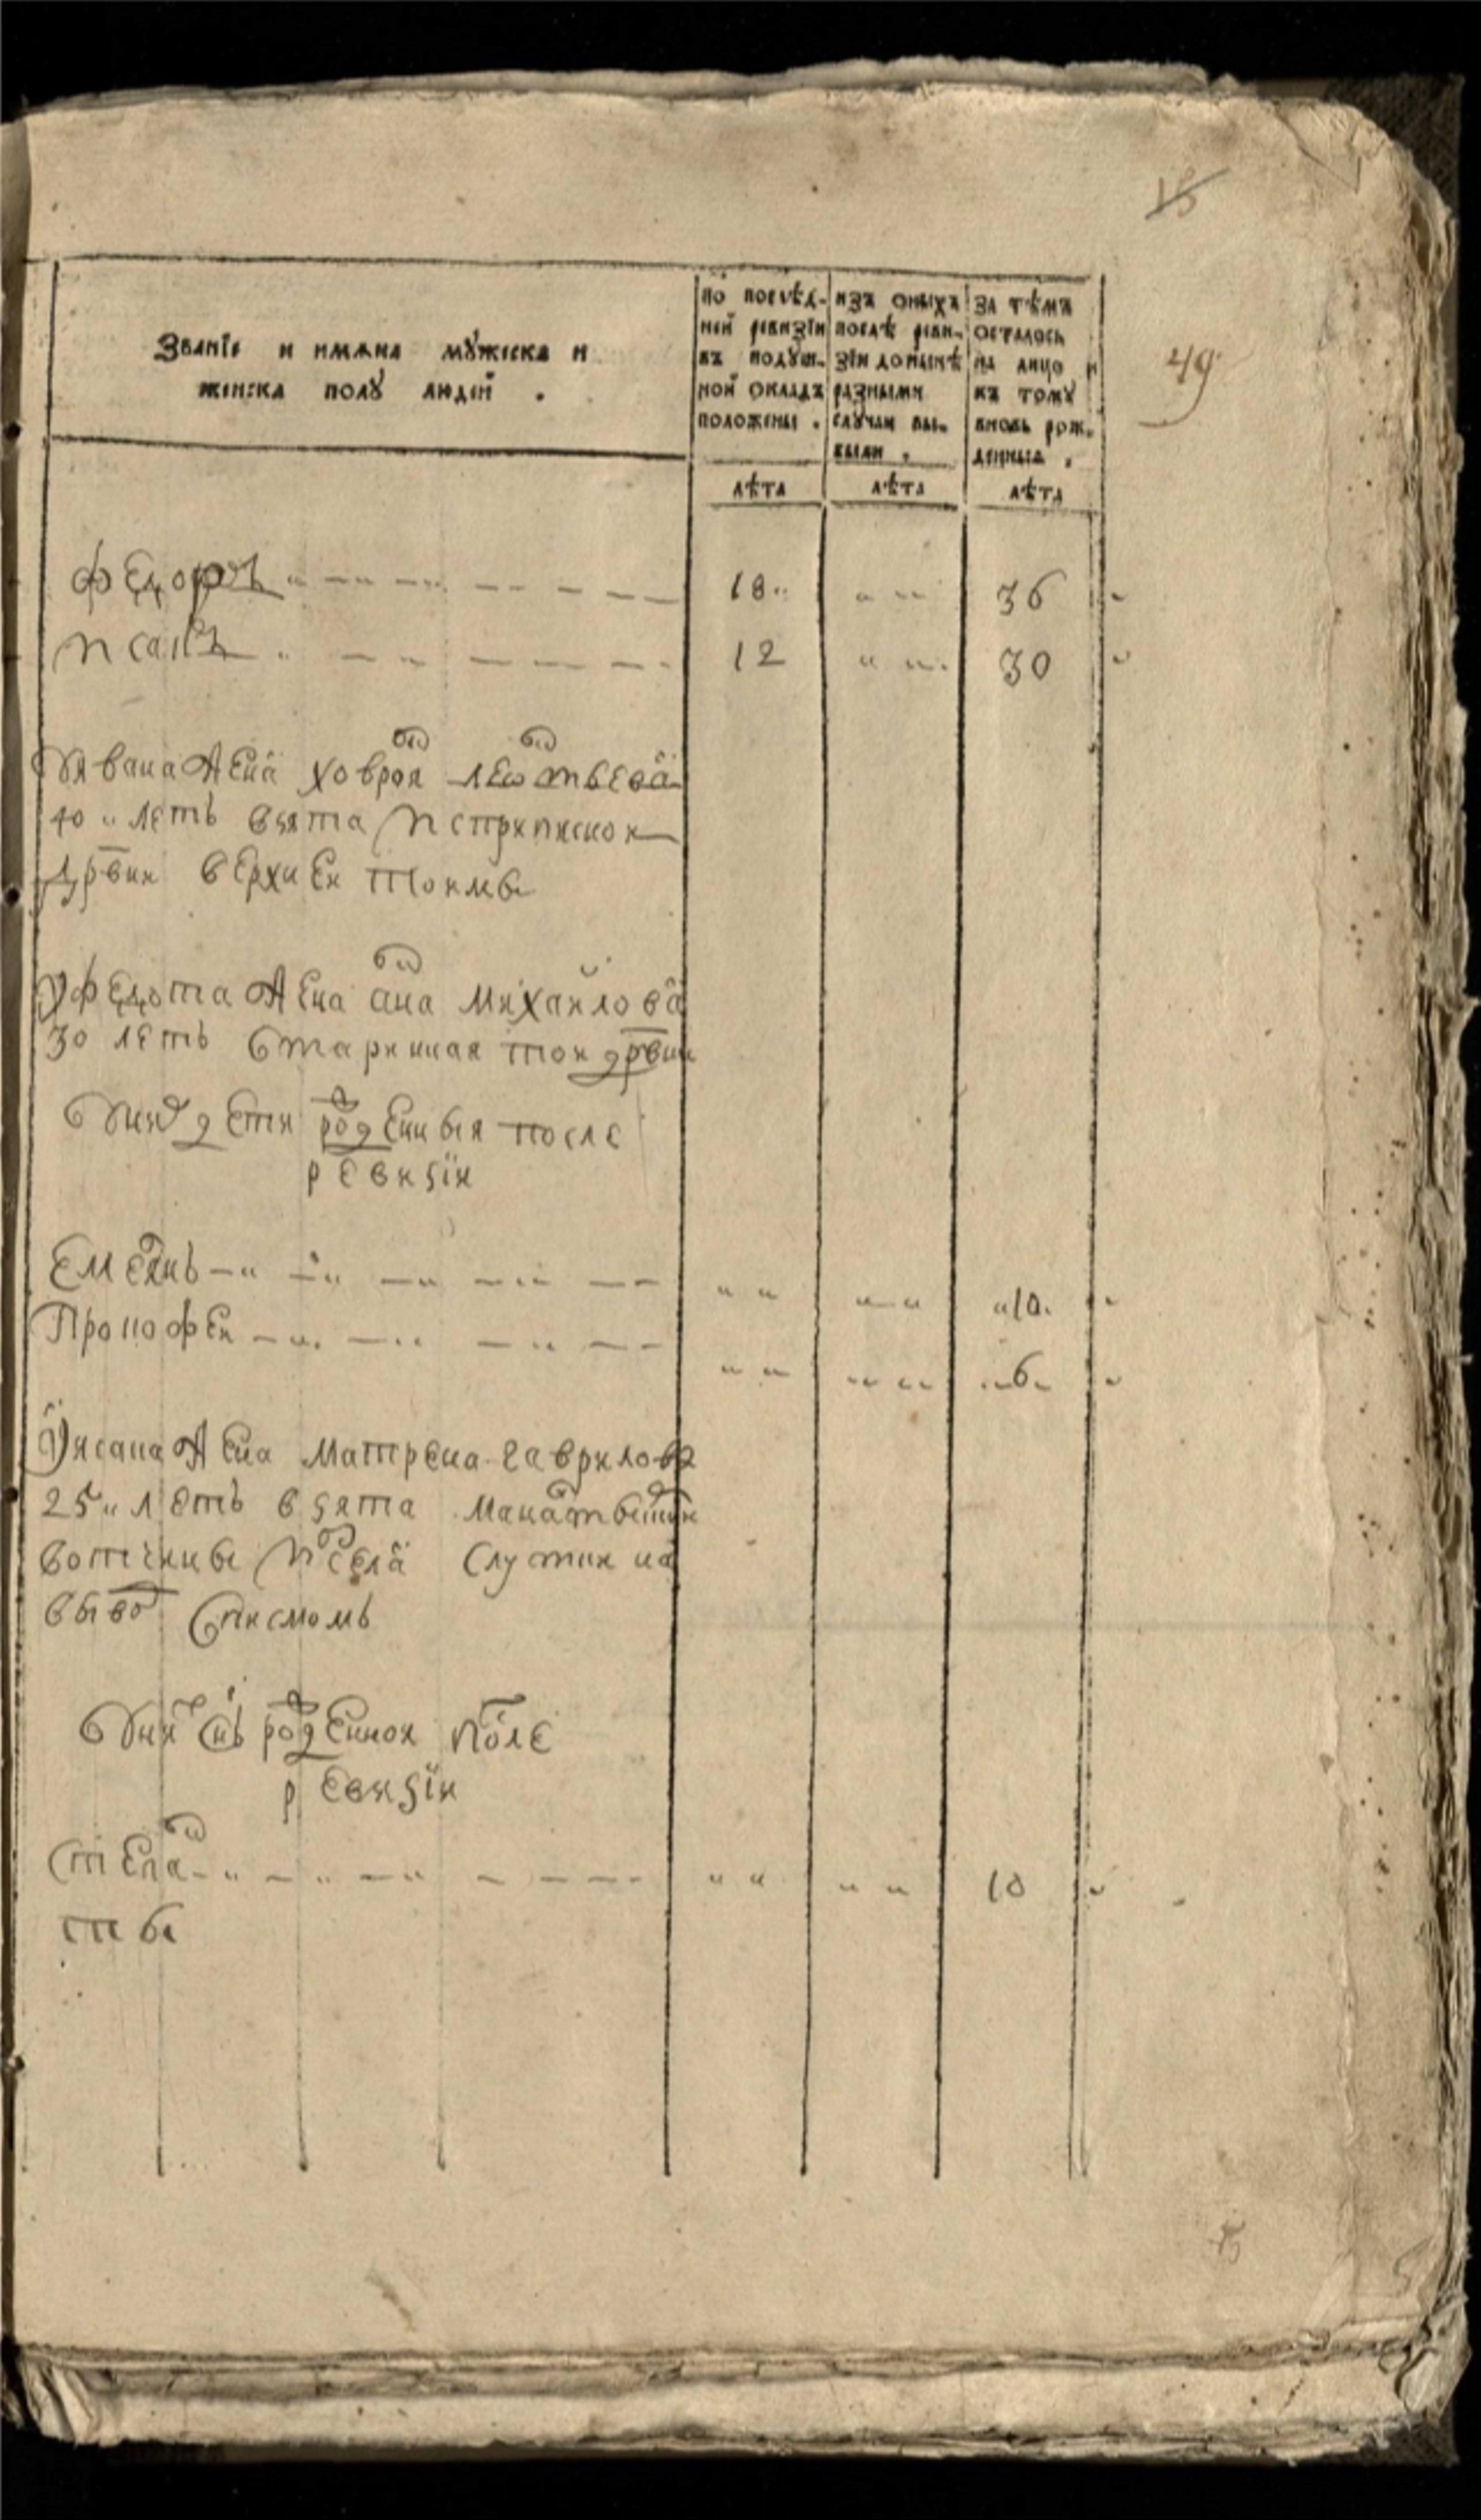 49
Званїе и имѧна мꙋжеска и
женска полꙋ людей .
по послѣд-
ней ревизїи
въ подꙋш-
ной окладъ
положены .
изъ оныхъ
послѣ реви-
зїи донынѣ
разными
слꙋчаи вы-
были .
за тѣмъ
осталось
на лицо и
къ томꙋ
вновь рож-
денныя .
лѣта
лѣта
лѣта
федоръ 18 36
исакъ 12 30
Уивана жена ховроя леонтьева
40 летъ взята исприписнои
дрвни верхней
Уфедота жена ана михаилова
30 летъ старинная тои дрвни
Униʼ дети рожденныя после
ревизїи
Емелянъ 10
Прокофеи 6
Уисака жена матрена гаврилова
25 летъ взята
вотчины исела на
вывод списмомъ
Унихъ снъ рожденнои после
ревизїи
степанъ 10